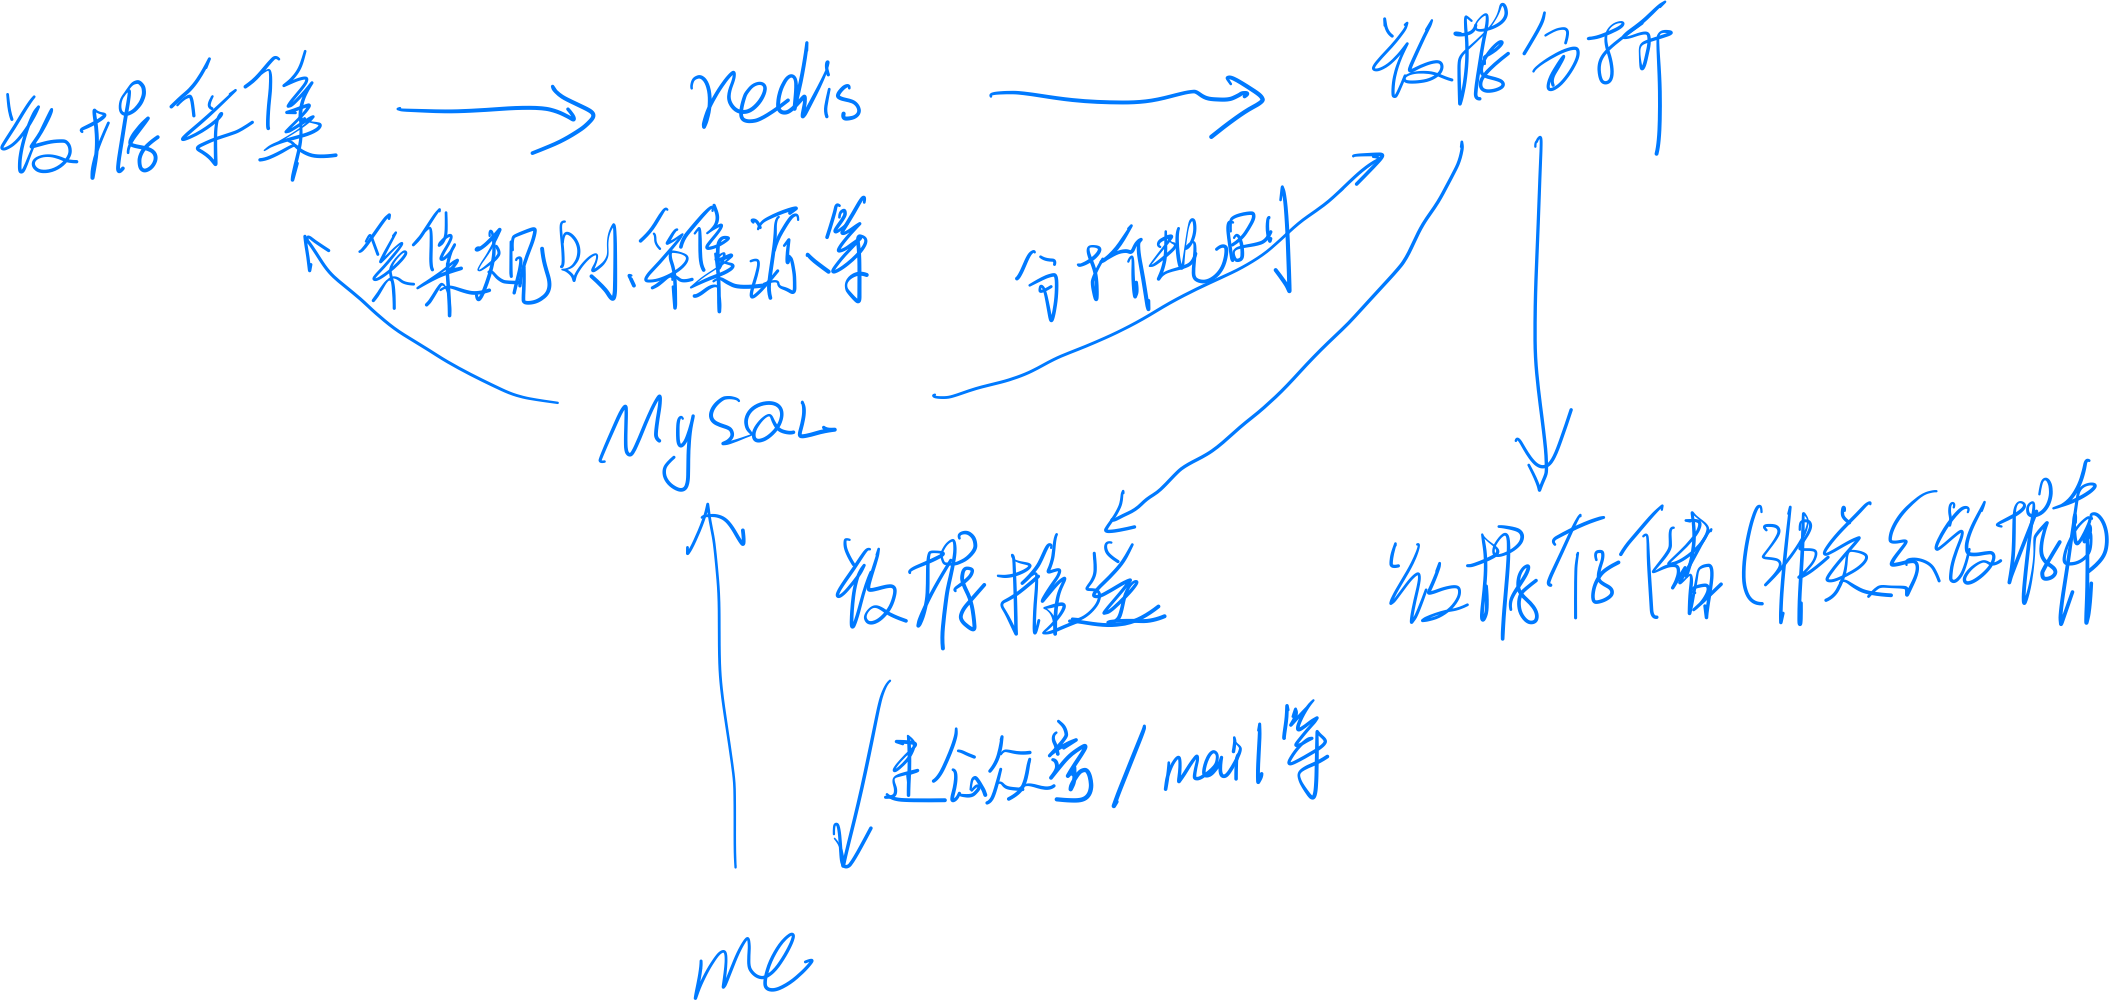 数据采集
redis
数据分析
采集规则、采集源等
分析规则
MySQL
数据推送
数据存储(非关系数据库)
公众号/mail等
me